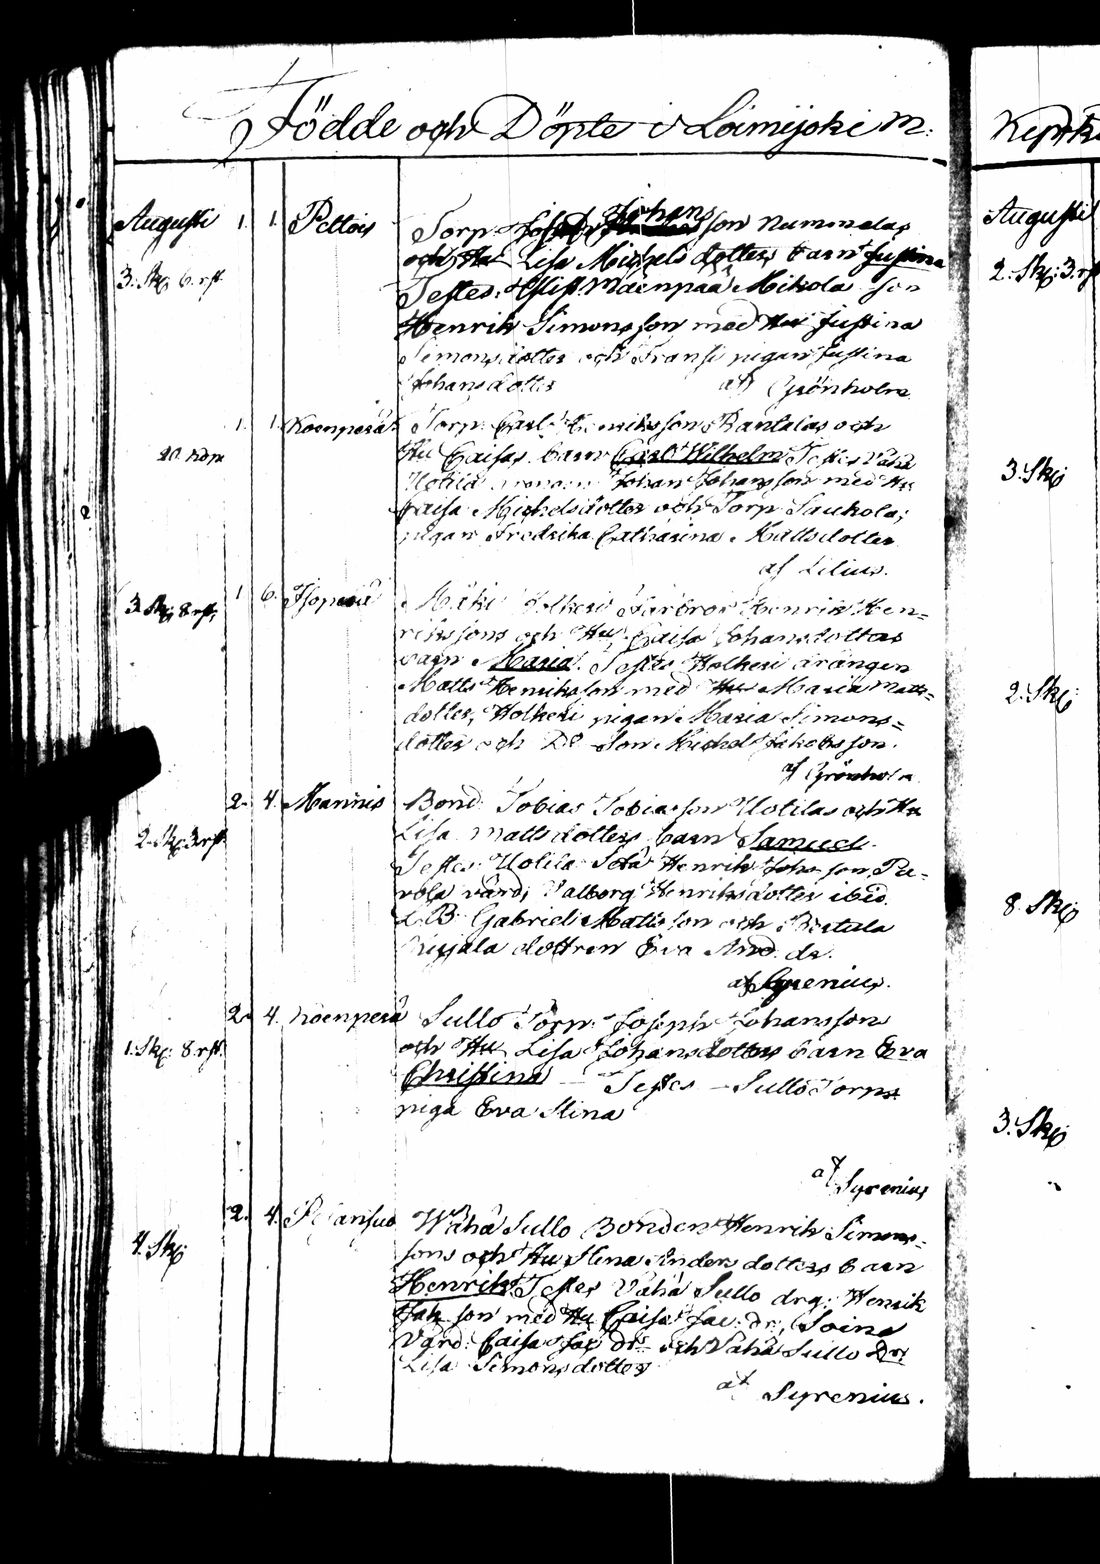 Födde och Döpte i Loimijoki M:
Kyrk
Augusti 1. 1. Pettois Torp. Johansson Nummalas
3. Sk: 6. rst. och Hu Lisa Michelsdotters barn Justina
Testes: Mäenpää Mikola son
Henrik Simonsson med Hu Justina
Simonsdotter och Fransi pigan Justina
Johansdotter af Grönholm
1. 1. Koenperä Torp. Carl Henriksson Rantalas och
Hu Caisas barn Carl Wilhelm Testes Vähä
Uotila Johan Johansson med Hu
Caisa Michelsdotter och Torp Saukola;
pigan Fredrika Catharina Mattsdotter
af Lilius.
3. Sk: 8 rst, 1 6. Isoperä Mäki Holkeri Farbror Henrik Hen=
rikssons och Hu Caisa Johansdotters
barn Maria. Testes Holkeri drängen
Matts Henriksson med Hu Maria Matts=
dotter, Holkeri pigan Maria Simons=
dotter och D:o Son Michel Jakobsson.
af Grönholm
2. 4. Mannis Bond. Tobias Tobiasson Uotilas och Hu
2. Sk: 3 rst. Lisa Mattsdotters barn Samuel.
Testes Uotila Henrik Joh. son, Pu-
vola värd, Valborg Henriksdotter ibid.
Gabriel Mattsson och
dottren Eva And. dr.
af Syrenius.
2. 4. Koenperä Sullo Torp. Joseph Johansson
1. Sk: 8. rst. och Hu Lisa Johansdotters barn Eva
Christina — Testes — Sullo Torps
piga Eva Stina
af Syrenius
2. 4. Wähä Sullo Bonden Henrik Simons-
4. Sk: sons och Hu Stina Andersdotters barn
Henrik Testes Vähä Sullo drg: Henrik
Jak. son med Hu Caisa Jac: dr, Soini
Värd. Caisa Jac dr och Vähä Sullo Dr
Lisa Simonsdotter
af Syrenius.
Augusti
2. Sk: 3. rst
3. Sk:
2. Sk:
8. Sk:
3. Sk: